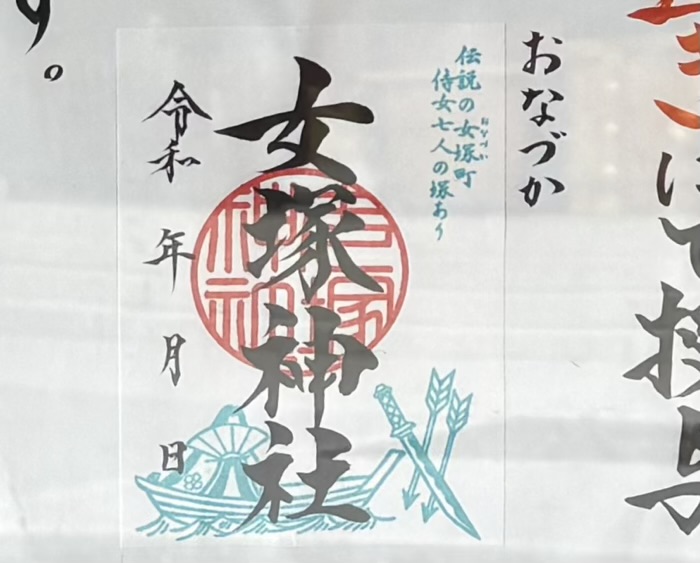 にて授与
おなづか
伝説の女塚町
おなづか
侍女七人の塚あり
女塚神社
令和 年 月 日
す。